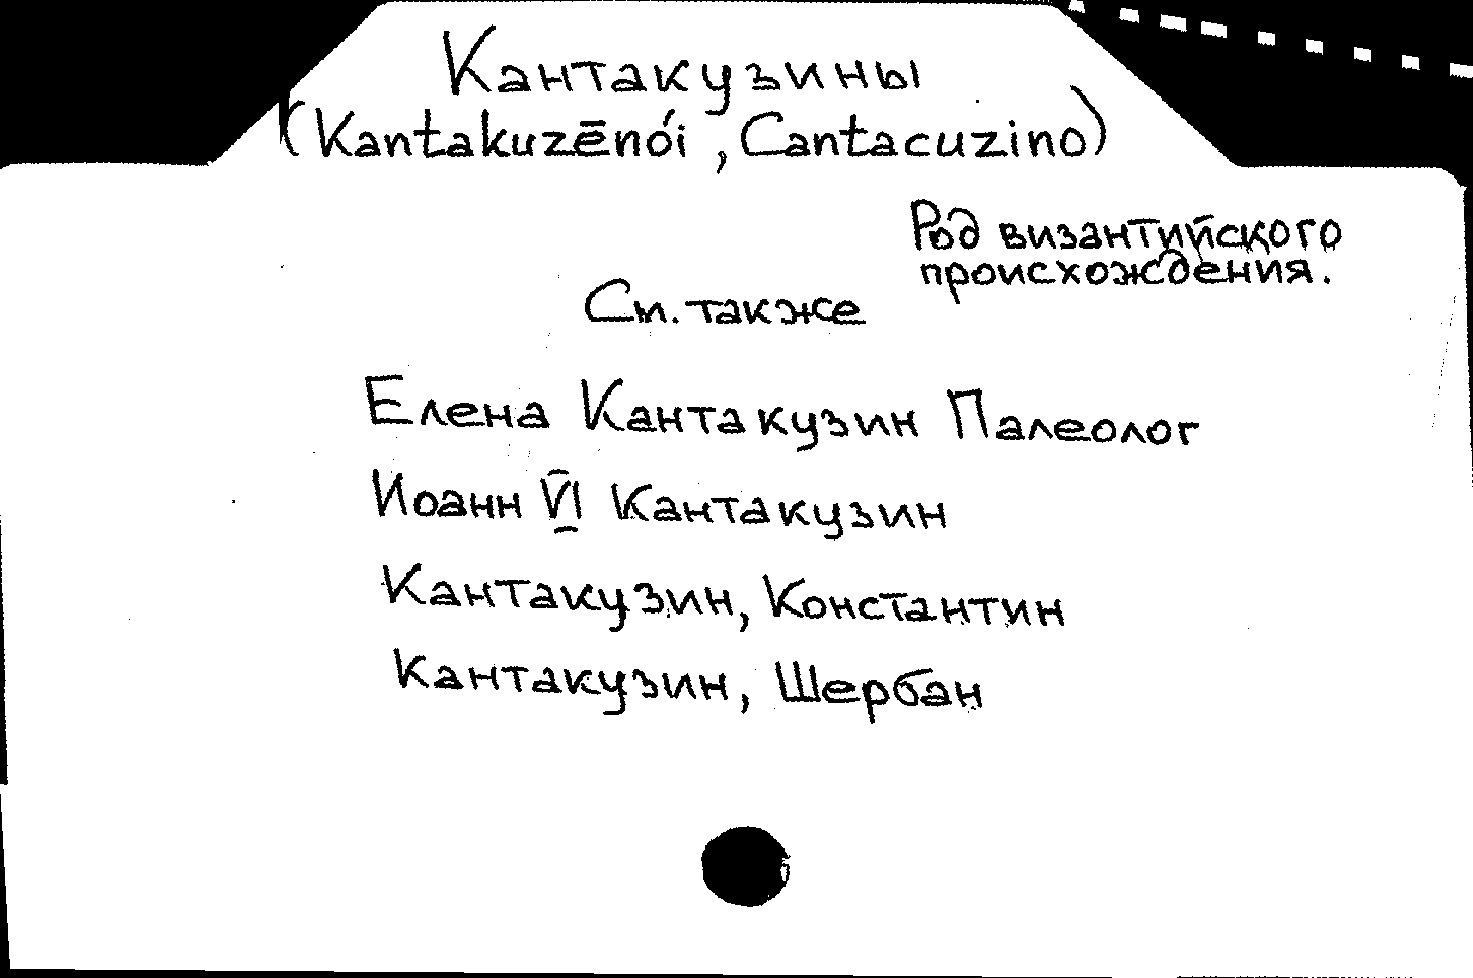 Кантакузины
(Kantakuzēnói, Cantacuzino)
Род византийского
происхождения.
См. также
Елена Кантакузин Палеолог
Иоанн VI Кантакузин
Кантакузин, Константин
Кантакузин, Шербан